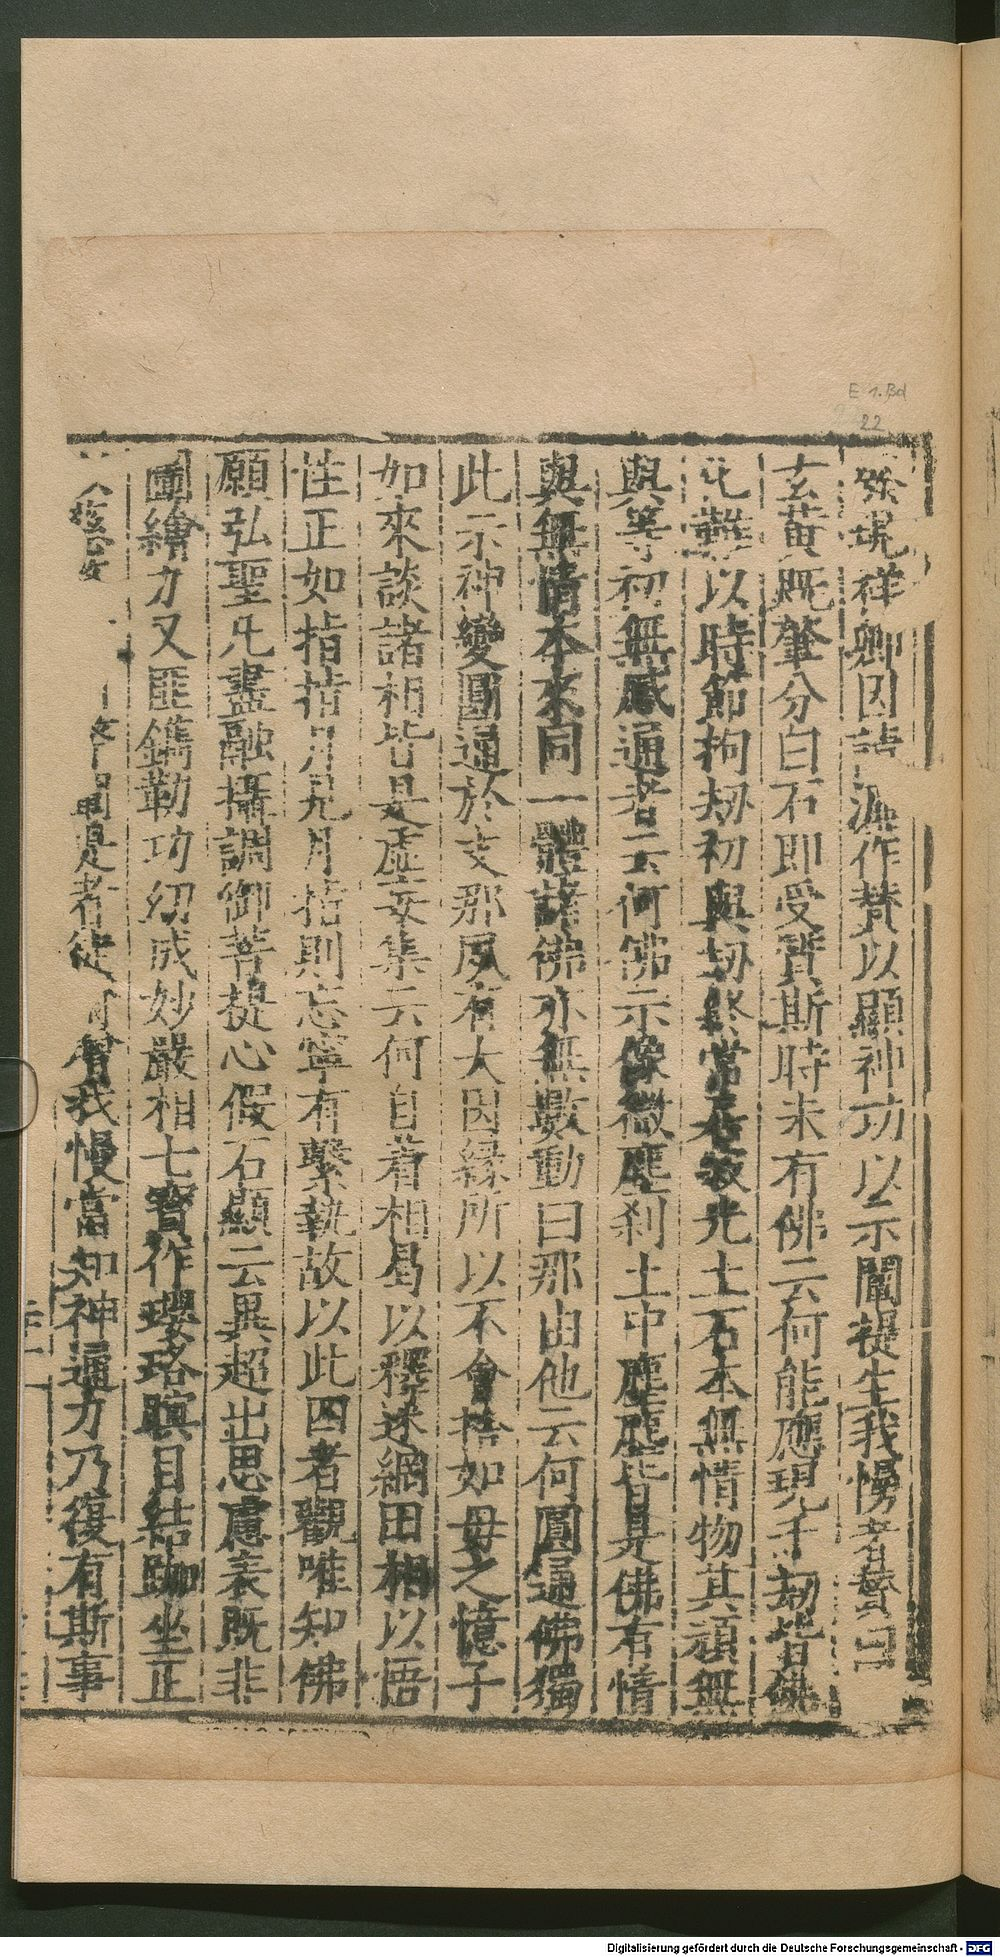 E 1. Bd
22
現祥卿因 作贊以顯神功以示闡提生我慢者贊曰
玄黄既肇分白石即受質斯時未有佛云何能應現千劫皆佛
難以時節拘劫初與劫終常放光土石本無情物其頑無
與等初無感通者云何佛示像微塵刹土中塵塵皆見佛有情
與無情本來同一體諸佛亦無數動曰那由他云何圓通佛獨
此示神變圓通於支那夙有大因緣所以不會捨如母之憶子
如來談諸相皆是虛妄集云何自着相曷以釋迷網因相以悟
性正如指指月見月指則忘寧有繫執故以此四者觀唯知佛
願弘聖凡盡融攝調御菩提心假石顯云異超出思慮表既非
圖繪力又匪鐫勒功幻成妙嚴相七寶作瓔珞瞑目結跏坐正
聞是者 我慢當知神通力乃復有斯事
Digitalisierung gefördert durch die Deutsche Forschungsgemeinschaft - DFG